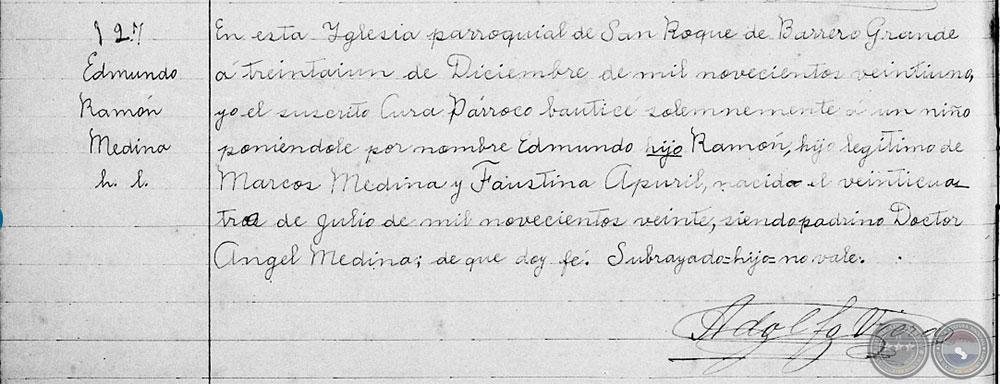 127
Edmundo
Ramón
Medina
h. l.
En esta Yglesia parroquial de San Roque de Barrero Grande
á treintaiun de Diciembre de mil novecientos veintiuno,
yo el suscrito Cura Párroco bauticé solemnemente á un niño
poniéndole por nombre Edmundo hijo Ramón, hijo legítimo de
Marcos Medina y Faustina Apuril, nacido el veinticua-
tro de Julio de mil novecientos veinte, siendo padrino Doctor
Angel Medina; de que doy fé. Subrayado=hijo=no vale.
Adolfo